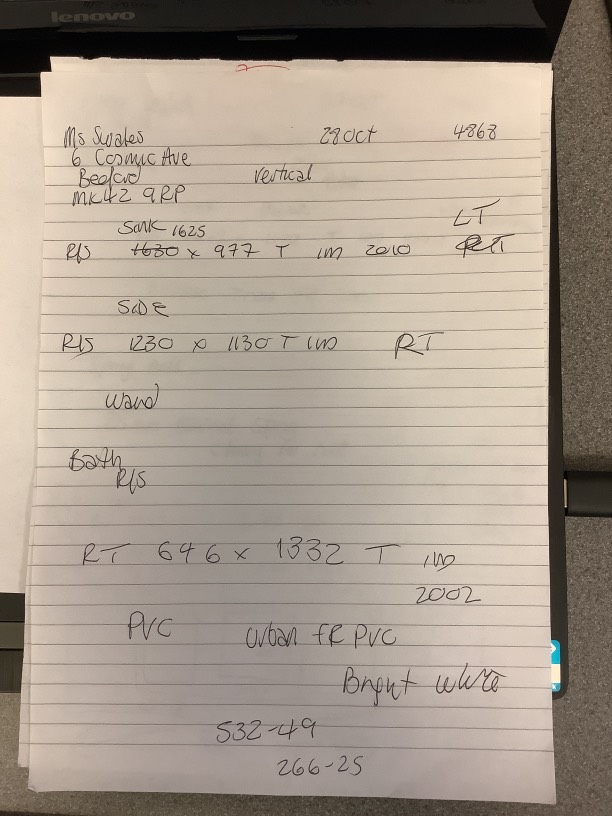 lenovo
Ms Swales 28 Oct 4868
6 Cosmic Ave
Bedford vertical
MK42 9RP
LT
Sink 1625
R/S 1630 x 977 T IM 2010 RT
SIDE
R/S 1230 x 1130 T IM RT
wand
Bath
R/S
RT 646 x 1332 T IM
2002
PVC Urban FR PVC
Bright white
532-49
266-25